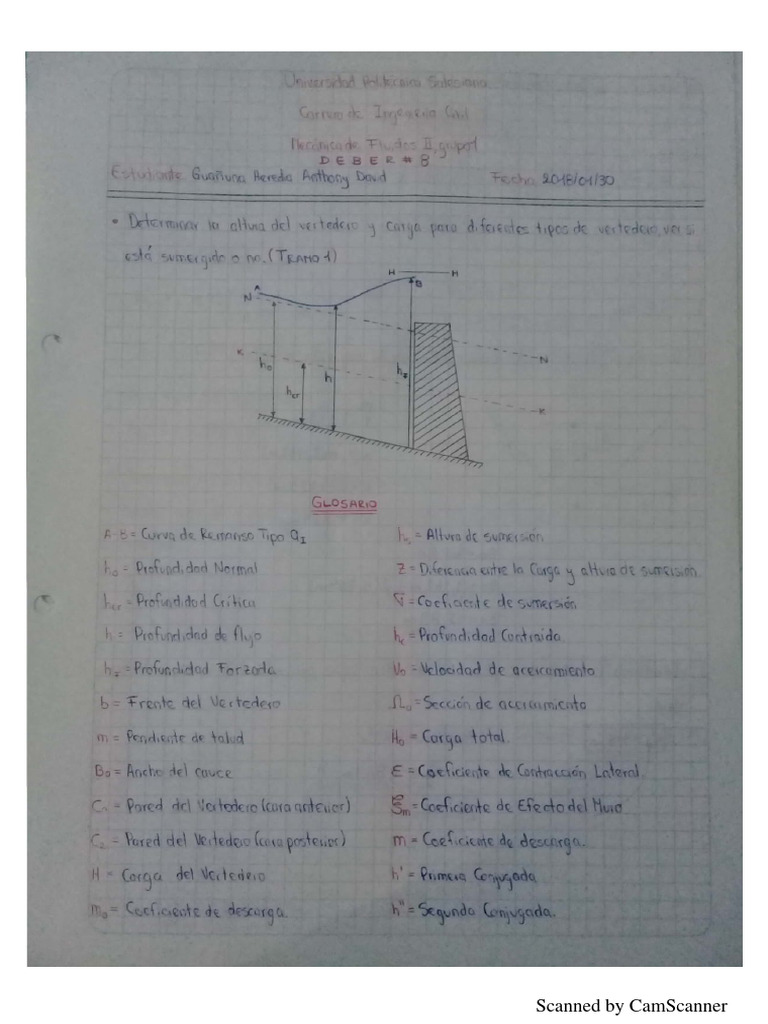 Universidad Politécnica Salesiana
Carrera de Ingeniería Civil
Mecánica de Fluidos II, grupo 1
DEBER # 8
Estudiante: Guañuna Heredia Anthony David Fecha: 2018/01/30
• Determinar la altura del vertedero y carga para diferentes tipos de vertedero, ver si
está sumergido o no. (TRAMO 1)
H H
A B
N
K
h₀ hcr h
N
K
GLOSARIO
A-B = Curva de Remanso Tipo a_I
h₀ = Profundidad Normal
hcr = Profundidad Crítica
h = Profundidad de flujo
= Profundidad Forzada
b = Frente del Vertedero
m = Pendiente de talud
B₀ = Ancho del cauce
C₁ = Pared del Vertedero (cara anterior)
C₂ = Pared del Vertedero (cara posterior)
H = Carga del Vertedero
m₀ = Coeficiente de descarga.
= Altura de sumersión
Z = Diferencia entre la Carga y altura de sumersión
= Coeficiente de sumersión
hc = Profundidad Contraída.
V₀ = Velocidad de acercamiento
Ω₀ = Sección de acercamiento
H₀ = Carga total.
Ɛ = Coeficiente de Contracción Lateral.
ξm = Coeficiente de Efecto del Muro
m = Coeficiente de descarga.
h' = Primera Conjugada
h'' = Segunda Conjugada.
Scanned by CamScanner